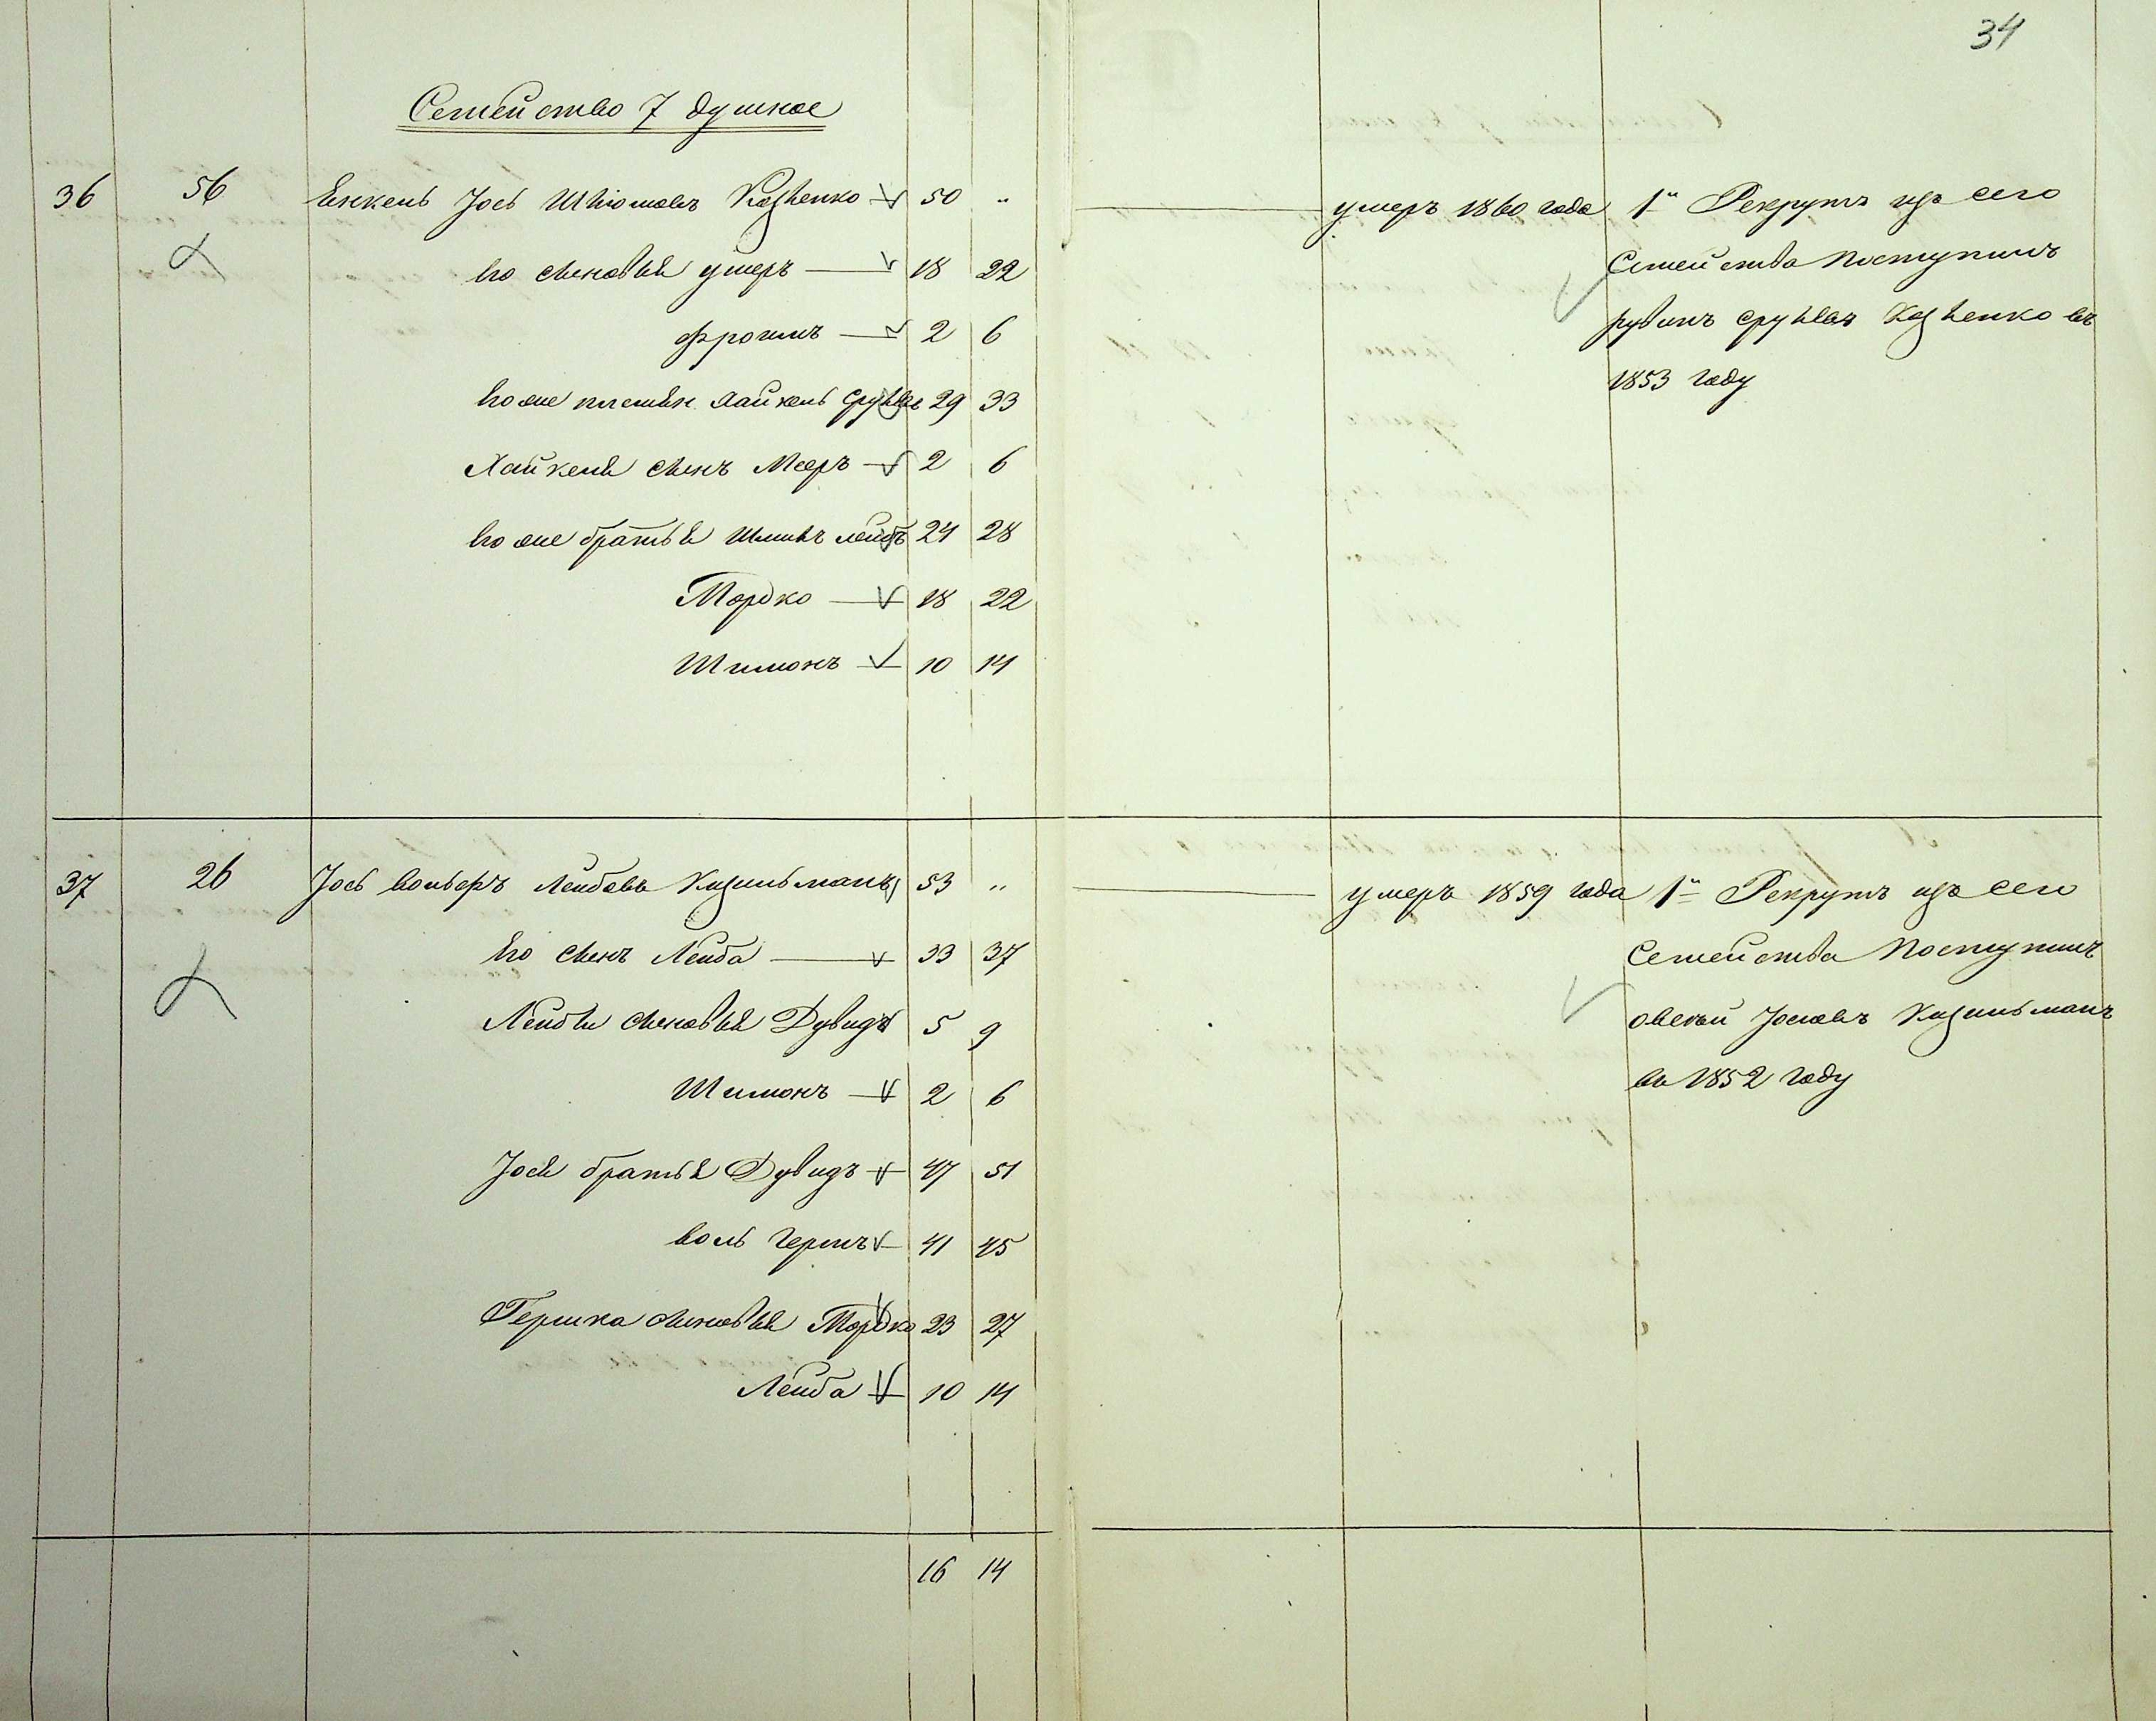 34
Семейство 7 душное
36 56 Енкель Іось Шліомовъ Козленко 50 „ умеръ 1860 года 1й Рекрутъ изъ сего
его сыновья умеръ 18 22 Семейства поступилъ
Фроимъ 2 6 рувинъ Срулевъ Козленко въ
его же племян Хайкель Срулевъ 29 33 1853 году
Хайкеля сынъ Мееръ 2 6
его же братья Шліомъ лейбъ 24 28
Мордко 18 22
Шимонъ 10 14
37 26 Іось вольверъ Лейбовъ Кизильманъ 53 „ умеръ 1859 года 1й Рекрутъ изъ сего
Его сынъ Лейба 33 37 Семейства Поступилъ
Лейбы сыновья Дувидъ 5 9 овсей Іосіовъ Кизильманъ
Шимонъ 2 6 въ 1852 году
Іося братья Дувидъ 47 51
воль Гершъ 41 45
Гершка сыновья Мордко 23 27
Лейба 10 14
16 14